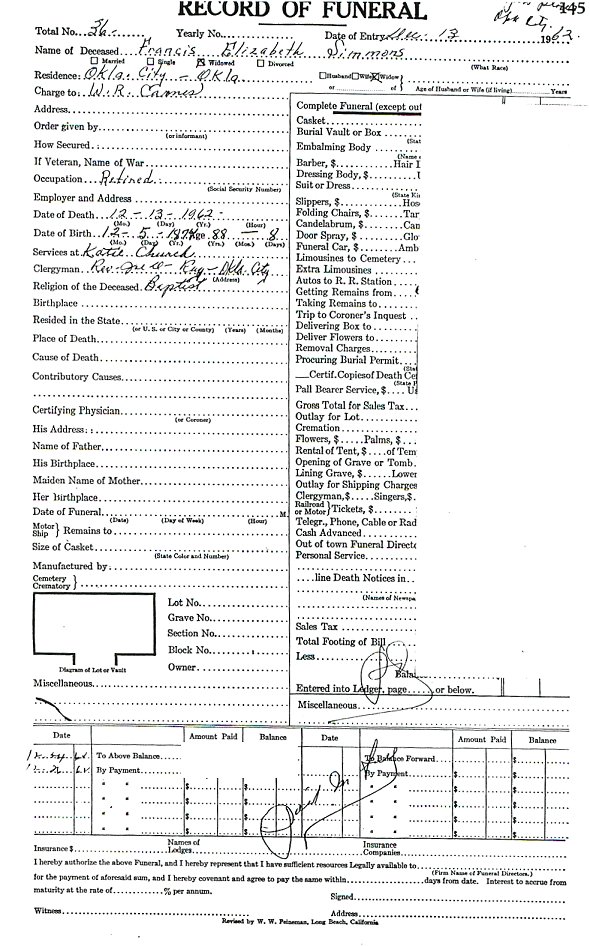 RECORD OF FUNERAL 145
Total No. 36 Yearly No. Date of Entry Dec. 13 1962
Name of Deceased Francis Elizabeth Simmons
Married Single Widowed Divorced (What Race)
Residence: Okla. City - Okla Husband Wife Widow
or of Age of Husband or Wife (if living) Years
Charge to W. R.
Address
Order given by
(or informant)
How Secured
If Veteran, Name of War
Occupation Retired
(Social Security Number)
Employer and Address
Date of Death 12 - 13 - 1962
(Mo.) (Day) (Yr.) (Hour)
Date of Birth 12 - 5 - Age 88 - 8
(Mo.) (Day) (Yr.) (Yrs.) (Mon.) (Days)
Services at Katie Church
Clergyman Rev. Okla. City
(Address)
Religion of the Deceased Baptist
Birthplace
Resided in the State
(or U. S. or City or County) (Years) (Months)
Place of Death
Cause of Death
Contributory Causes
Certifying Physician
(or Coroner)
His Address:
Name of Father
His Birthplace
Maiden Name of Mother
Her Birthplace
Date of Funeral M.
(Date) (Day of Week) (Hour)
Motor Ship } Remains to
Size of Casket
(State Color and Number)
Manufactured by
Cemetery Crematory }
Lot No.
Grave No.
Section No.
Block No.
Owner
Diagram of Lot or Vault
Miscellaneous
Complete Funeral (except out
Casket
Burial Vault or Box
(Stat
Embalming Body
(Name o
Barber, $ Hair
Dressing Body, $
Suit or Dress
(State Ki
Slippers, $ Hos
Folding Chairs, $ Tar
Candelabrum, $ Can
Door Spray, $ Glo
Funeral Car, $ Amb
Limousines to Cemetery
Extra Limousines
Autos to R. R. Station
Getting Remains from
Taking Remains to
Trip to Coroner's Inquest
Delivering Box to
Deliver Flowers to
Removal Charges
Procuring Burial Permit
(Stat
Certif. Copies of Death Cer
(State P
Pall Bearer Service, $ Us
Gross Total for Sales Tax
Outlay for Lot
Cremation
Flowers, $ Palms, $
Rental of Tent, $ of Tem
Opening of Grave or Tomb
Lining Grave, $ Lower
Outlay for Shipping Charges
Clergyman, $ Singers, $
Railroad or Motor } Tickets, $
Telegr., Phone, Cable or Rad
Cash Advanced
Out of town Funeral Directo
Personal Service
line Death Notices in
(Names of Newspa
Sales Tax
Total Footing of Bill
Less
Bala
Entered into Ledger, page or below.
Miscellaneous
Date Amount Paid Balance Date Amount Paid Balance
To Above Balance $ To Balance Forward $
By Payment By Payment
" " $ $ " " $ $
" " $ $ " " $ $
" " $ $ " " $ $
" " $ $ " " $ $
Insurance $ Names of Lodges Insurance Companies
I hereby authorize the above Funeral, and I hereby represent that I have sufficient resources Legally available to
(Firm Name of Funeral Directors.)
for the payment of aforesaid sum, and I hereby covenant and agree to pay the same within days from date. Interest to accrue from
maturity at the rate of % per annum.
Signed
Witness Address
Revised by W. W. Feineman, Long Beach, California